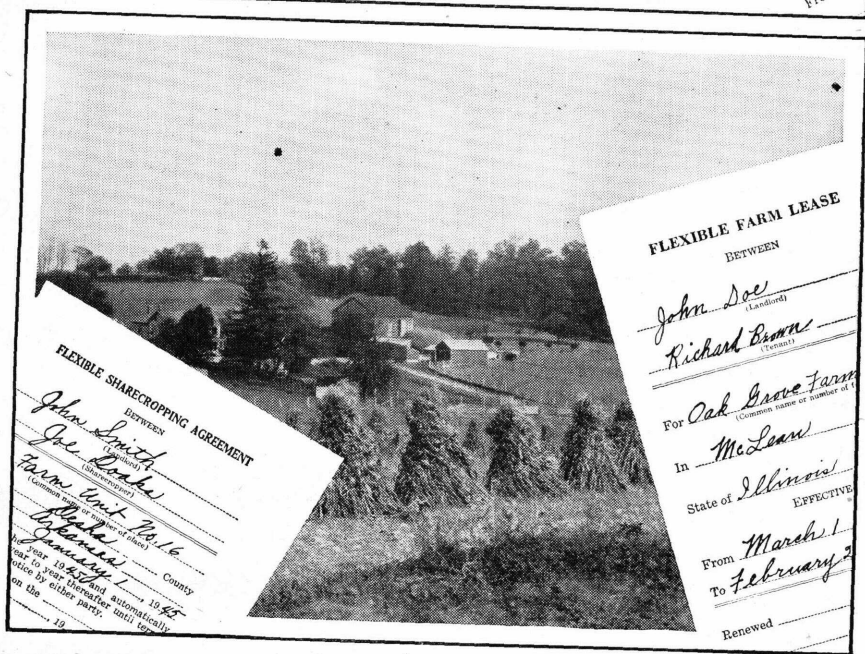 FLEXIBLE SHARECROPPING AGREEMENT
BETWEEN
John Smith
(Landlord)
Joe Doaks
(Sharecropper)
Farm Unit No. 16
(Common name or number of place)
Desha County
Arkansas
January 1, 1945
year 1945 and automatically
year to year thereafter until
notice by either party.
on the
, 19
FLEXIBLE FARM LEASE
BETWEEN
John Doe
(Landlord)
Richard Brown
(Tenant)
For Oak Grove Farm
(Common name or number of
In McLean
State of Illinois
EFFECTIVE
From March 1
To February 2
Renewed